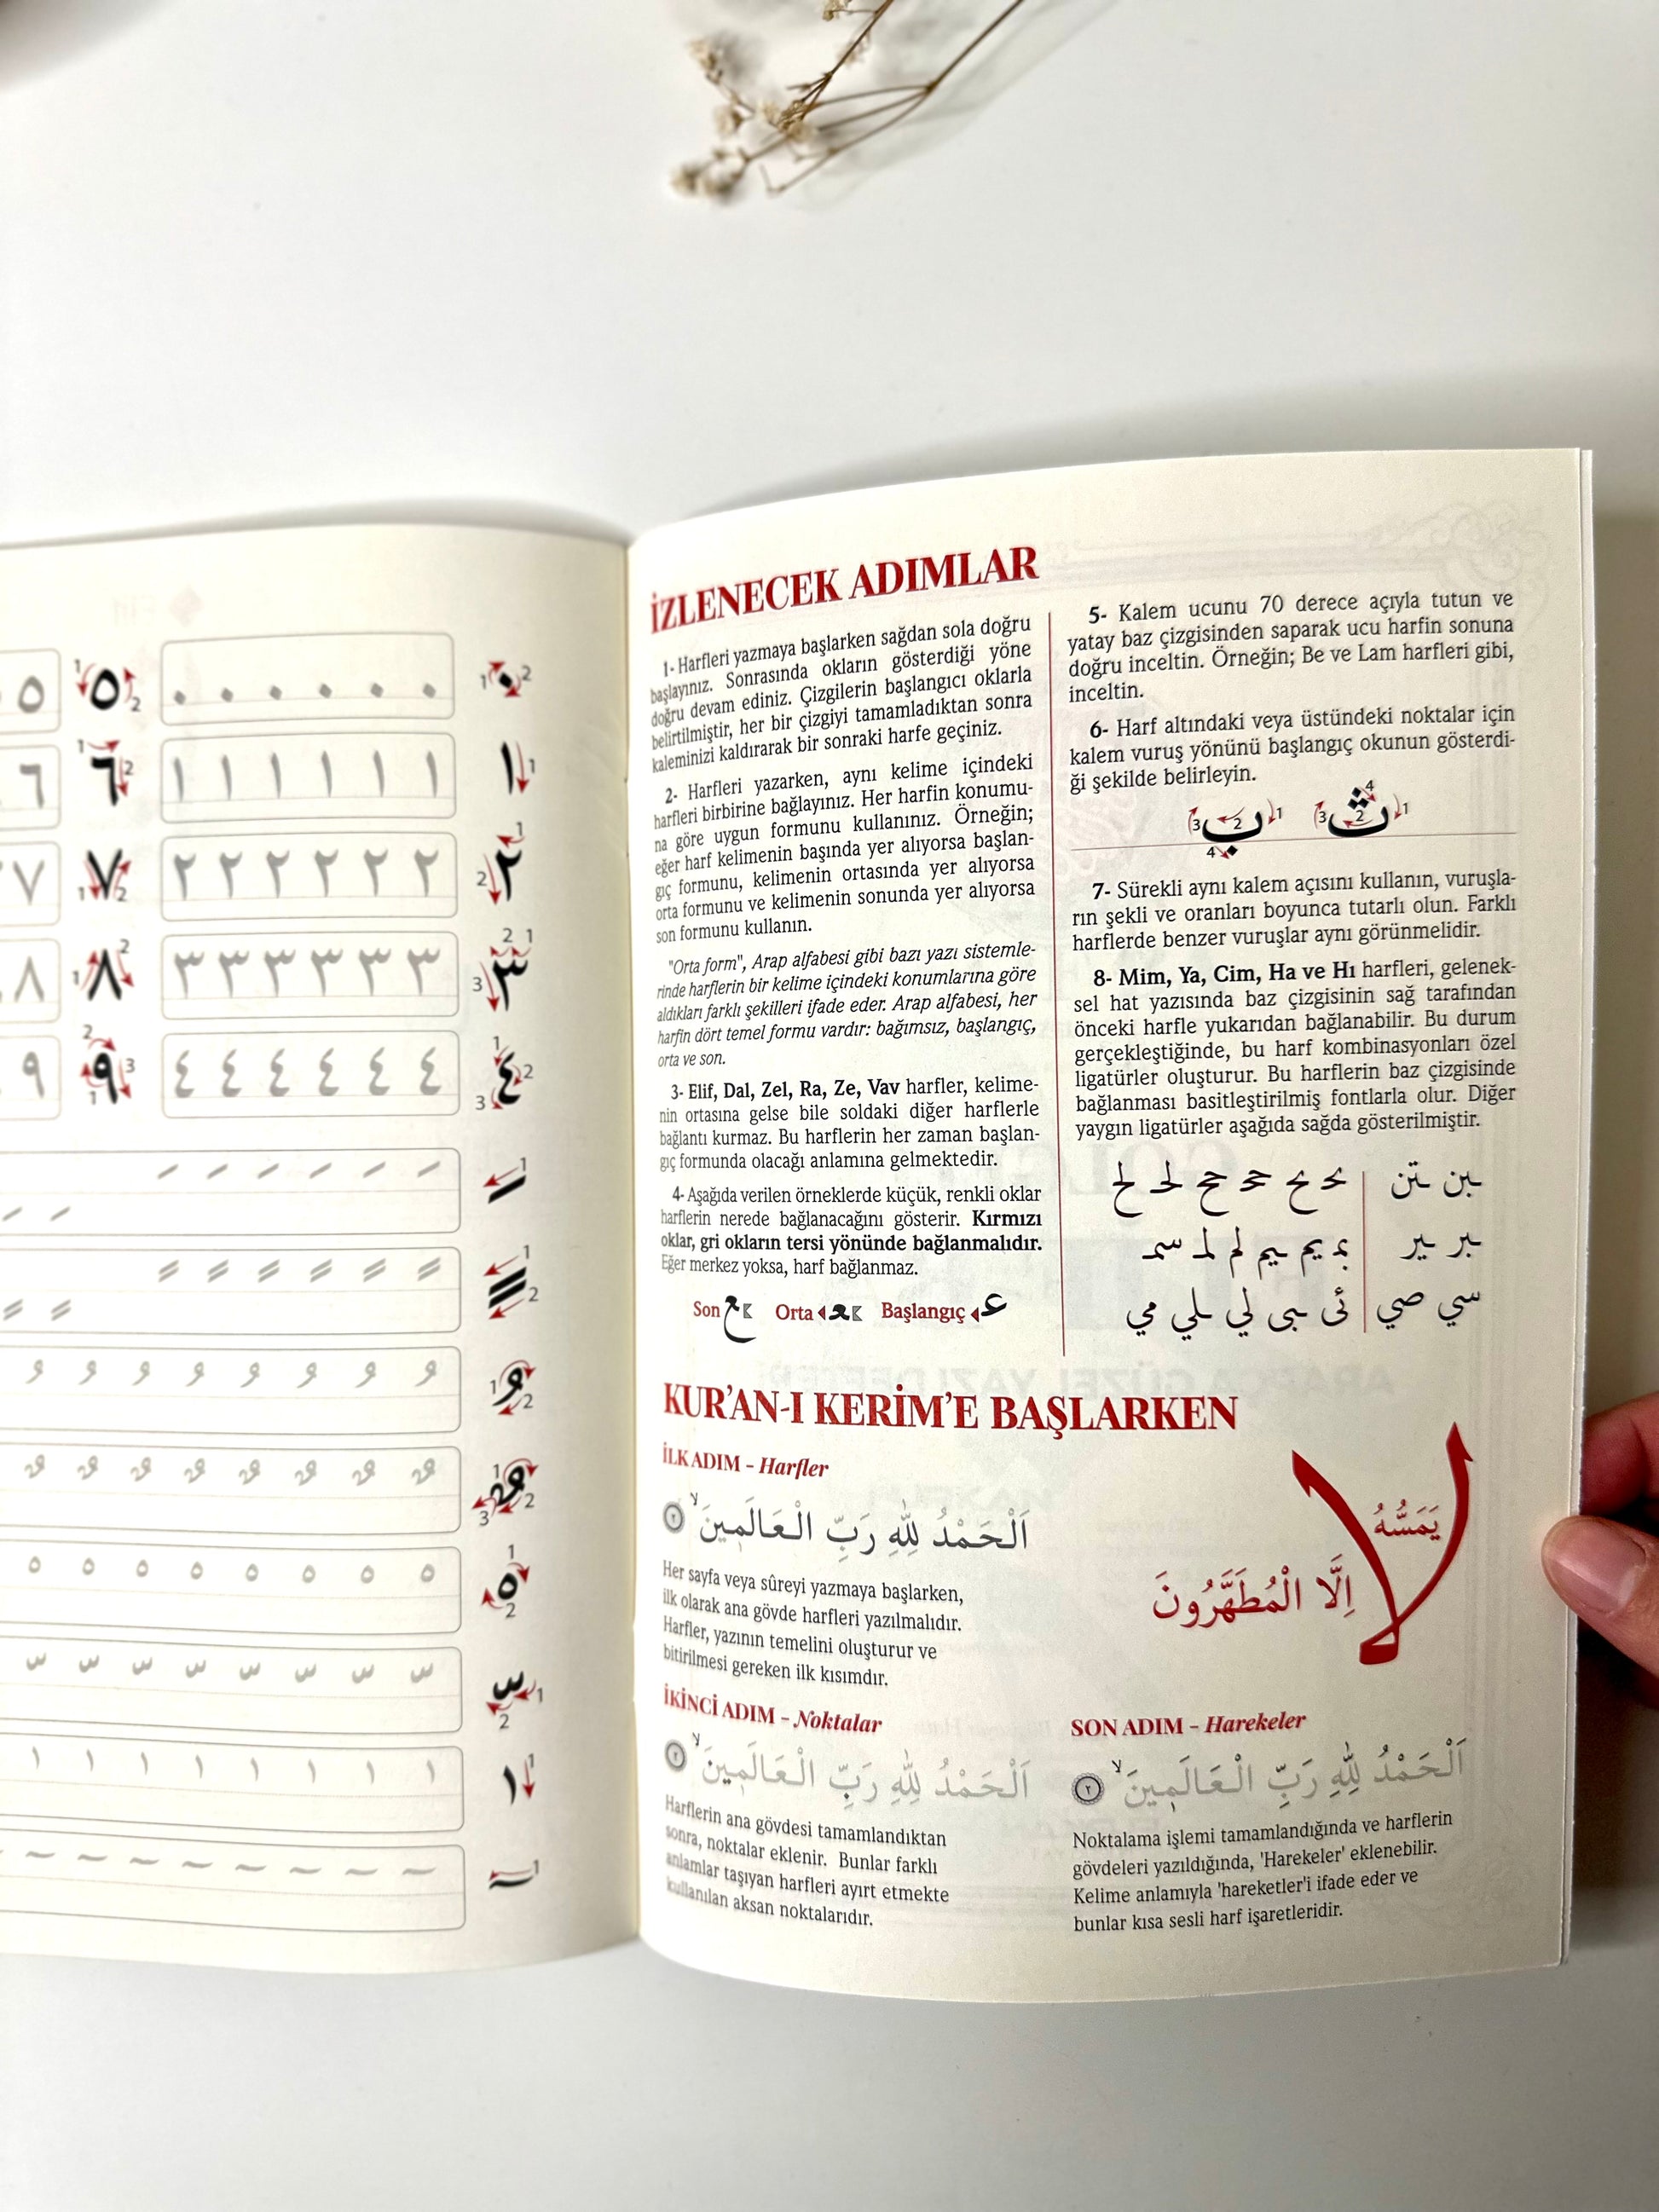 ٠ ٠ ٠ ٠ ٠ ٠
١ ١ ١ ١ ١ ١ ١
٢ ٢ ٢ ٢ ٢ ٢ ٢
٣ ٣ ٣ ٣ ٣ ٣ ٣
٤ ٤ ٤ ٤ ٤ ٤ ٤
٥ ٥
٦ ٦
٧ ٧
٨ ٨
٩ ٩
İZLENECEK ADIMLAR
1- Harfleri yazmaya başlarken sağdan sola doğru
başlayınız. Sonrasında okların gösterdiği yöne
doğru devam ediniz. Çizgilerin başlangıcı oklarla
belirtilmiştir, her bir çizgiyi tamamladıktan sonra
kaleminizi kaldırarak bir sonraki harfe geçiniz.
2- Harfleri yazarken, aynı kelime içindeki
harfleri birbirine bağlayınız. Her harfin konumu-
na göre uygun formunu kullanınız. Örneğin;
eğer harf kelimenin başında yer alıyorsa başlan-
gıç formunu, kelimenin ortasında yer alıyorsa
orta formunu ve kelimenin sonunda yer alıyorsa
son formunu kullanın.
"Orta form", Arap alfabesi gibi bazı yazı sistemle-
rinde harflerin bir kelime içindeki konumlarına göre
aldıkları farklı şekilleri ifade eder. Arap alfabesi, her
harfin dört temel formu vardır: bağımsız, başlangıç,
orta ve son.
3- Elif, Dal, Zel, Ra, Ze, Vav harfler, kelime-
nin ortasına gelse bile soldaki diğer harflerle
bağlantı kurmaz. Bu harflerin her zaman başlan-
gıç formunda olacağı anlamına gelmektedir.
4- Aşağıda verilen örneklerde küçük, renkli oklar
harflerin nerede bağlanacağını gösterir. Kırmızı
oklar, gri okların tersi yönünde bağlanmalıdır.
Eğer merkez yoksa, harf bağlanmaz.
Son Orta Başlangıç
5- Kalem ucunu 70 derece açıyla tutun ve
yatay baz çizgisinden saparak ucu harfin sonuna
doğru inceltin. Örneğin; Be ve Lam harfleri gibi,
inceltin.
6- Harf altındaki veya üstündeki noktalar için
kalem vuruş yönünü başlangıç okunun gösterdi-
ği şekilde belirleyin.
ث ب
7- Sürekli aynı kalem açısını kullanın, vuruşla-
rın şekli ve oranları boyunca tutarlı olun. Farklı
harflerde benzer vuruşlar aynı görünmelidir.
8- Mim, Ya, Cim, Ha ve Hı harfleri, gelenek-
sel hat yazısında baz çizgisinin sağ tarafından
önceki harfle yukarıdan bağlanabilir. Bu durum
gerçekleştiğinde, bu harf kombinasyonları özel
ligatürler oluşturur. Bu harflerin baz çizgisinde
bağlanması basitleştirilmiş fontlarla olur. Diğer
yaygın ligatürler aşağıda sağda gösterilmiştir.
KUR'AN-I KERİM'E BAŞLARKEN
İLK ADIM – Harfler
اَلْحَمْدُ لِلّٰهِ رَبِّ الْعَالَمٖينَۙ ٢
Her sayfa veya sûreyi yazmaya başlarken,
ilk olarak ana gövde harfleri yazılmalıdır.
Harfler, yazının temelini oluşturur ve
bitirilmesi gereken ilk kısımdır.
لَا يَمَسُّهُ
اِلَّا الْمُطَهَّرُونَ
İKİNCİ ADIM – Noktalar
اَلْحَمْدُ لِلّٰهِ رَبِّ الْعَالَمٖينَۙ ٢
Harflerin ana gövdesi tamamlandıktan
sonra, noktalar eklenir. Bunlar farklı
anlamlar taşıyan harfleri ayırt etmekte
kullanılan aksan noktalarıdır.
SON ADIM – Harekeler
اَلْحَمْدُ لِلّٰهِ رَبِّ الْعَالَمٖينَۙ ٢
Noktalama işlemi tamamlandığında ve harflerin
gövdeleri yazıldığında, 'Harekeler' eklenebilir.
Kelime anlamıyla 'hareketler'i ifade eder ve
bunlar kısa sesli harf işaretleridir.